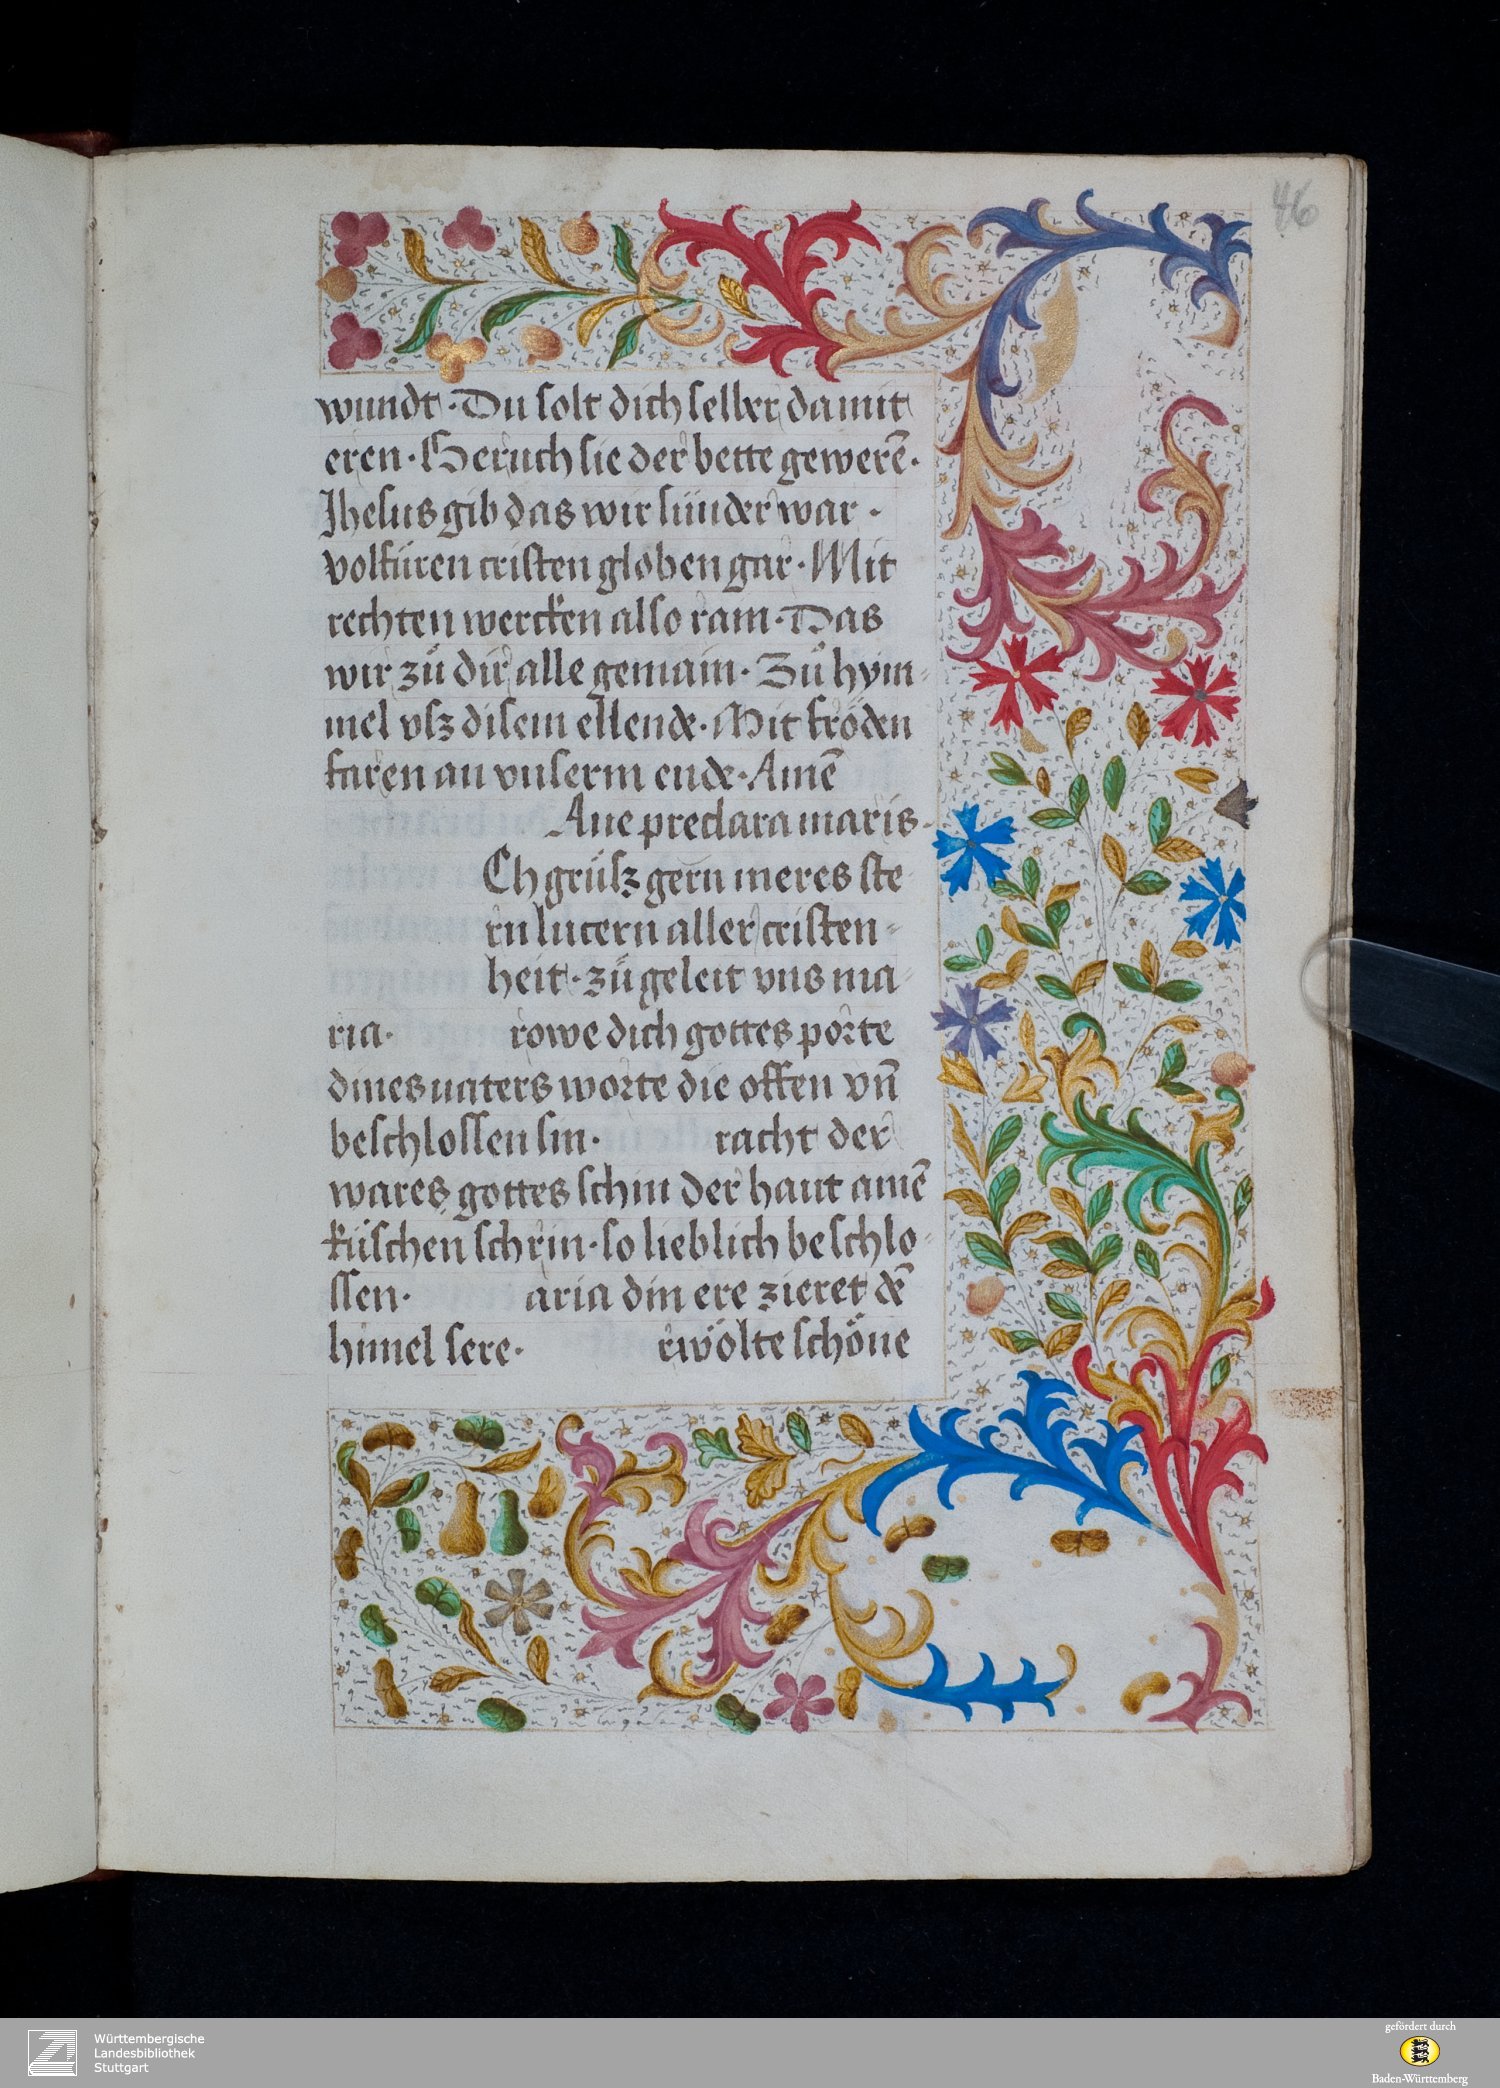 46
wundt · Du solt dich selber damit
eren · Geruch sie der bette gewerē ·
Jhesus gib das wir sünder war ·
volfüren cristen globen gar · Mit
rechten wercken also ram · Das
wir zů dir alle gemain · Zů hym-
mel vsz disem ellende · Mit fröden
faren an vnserm ende · Amē
Aue preclara maris
Ch grüsz gern meres ste-
rn lucern aller cristen-
heit · zů geleit vns ma-
ria · rowe dich gottes porte
dines uaters worte die offen vñ
beschlossen sin · racht der
wares gottes schin der haut amē
küschen schrin · so lieblich beschlo-
ssen · aria din ere zieret dē
himel sere · rwölte schöne
Württembergische
Landesbibliothek
Stuttgart
gefördert durch
Baden-Württemberg